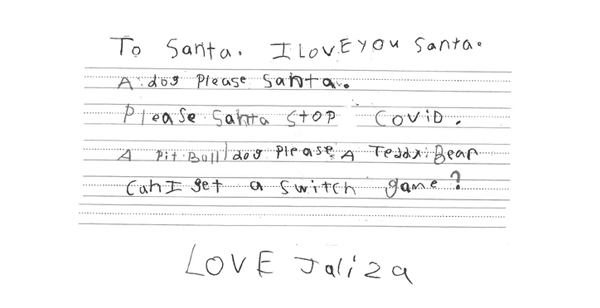 To Santa. I lovE you Santa.
A dog Please Santa.
Please Santa STOP COViD.
A Pit Bull dog Please A Teddy Bear
Can I get a switch game?
LOVE Jaliza